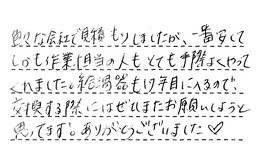 色々な会社で見積もりしましたが、一番安くて
しかも作業担当の人もとても手際よくやって
くれました。給湯器も17年目に入るので、
交換する際にはぜひまたお願いしようと
思ってます。ありがとうございました♡